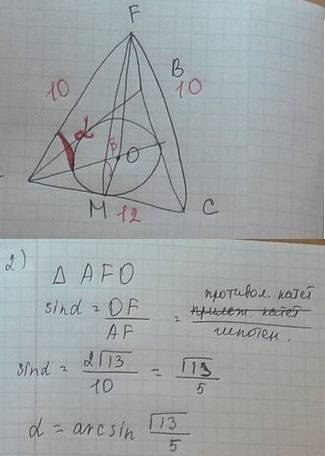 F
B
10
10
α
β
O
M
12
C
2)
Δ AFO
sinα = OF / AF = противол. катет / гипотен.
прилеж. катет
sinα = 2√13 / 10 = √13 / 5
α = arcsin √13 / 5